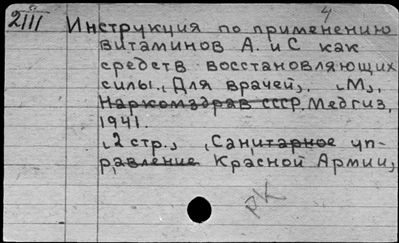 4
2III Инструкция по применению
витаминов А. и С как
средств восстановляющих
силы. (Для врачей). (М.),
Наркомздрав СССР. Медгиз,
1941.
(2 стр.), (Санитарное уп-
равление Красной Армии)
РК